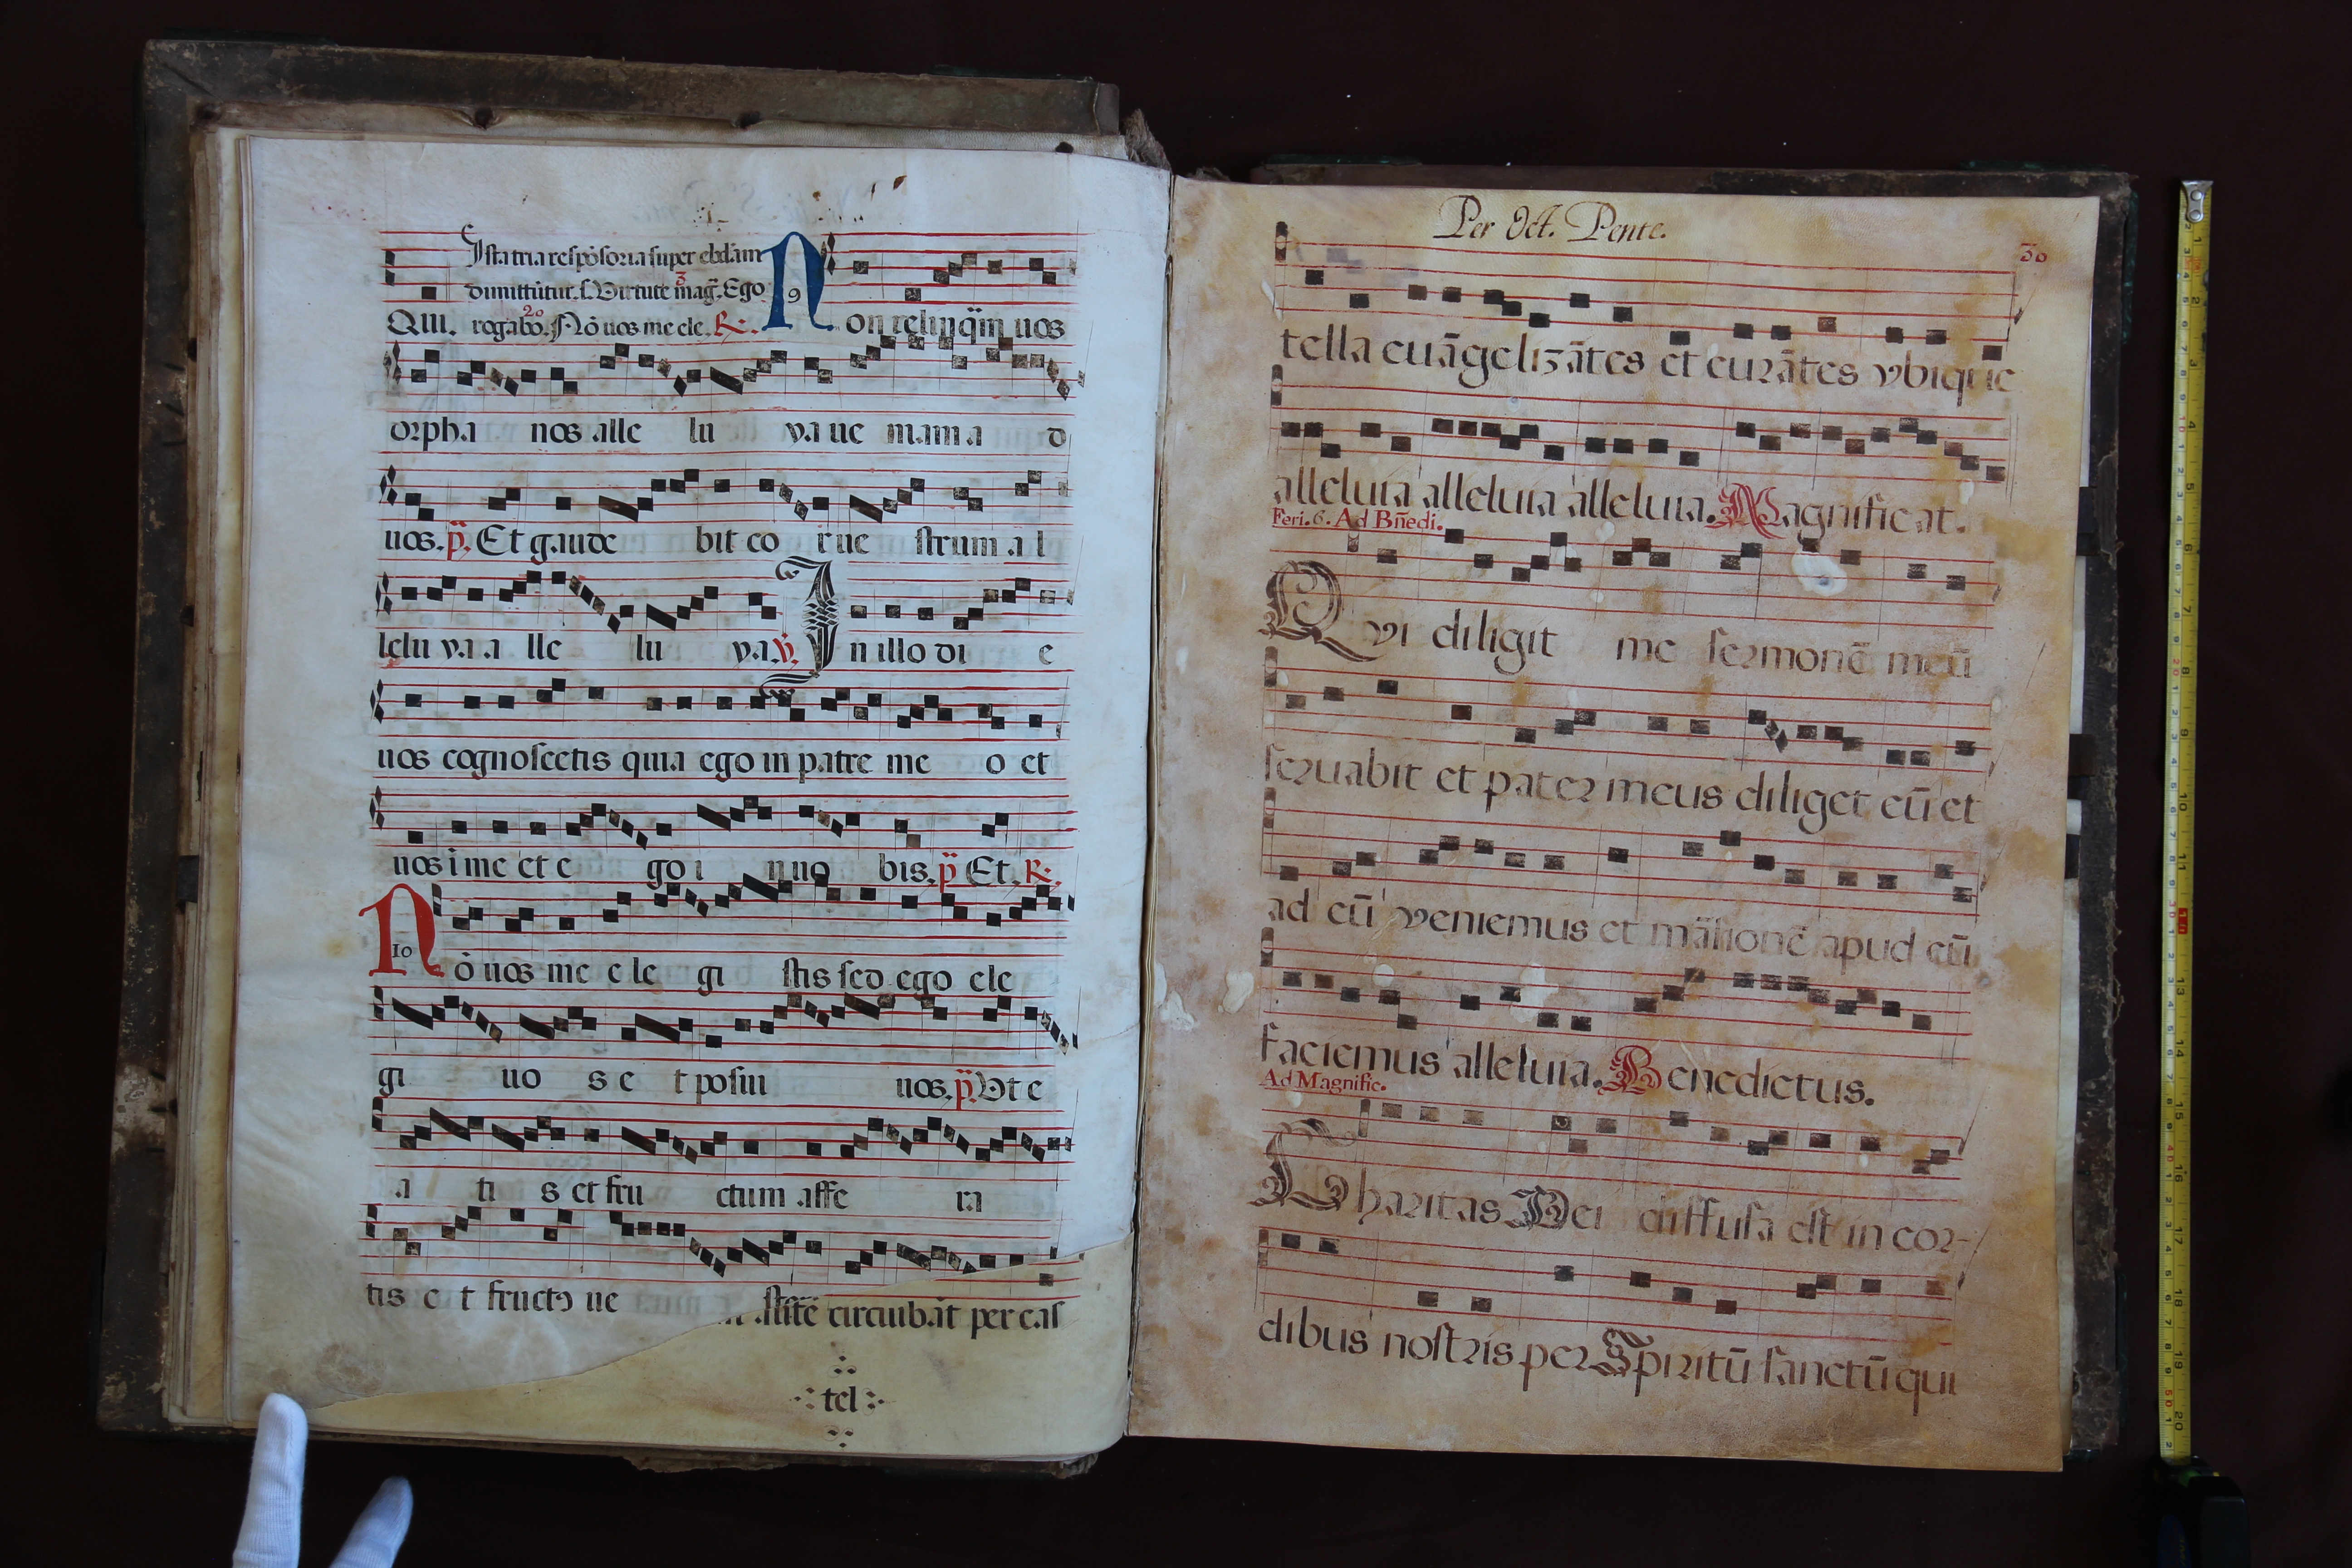 Ista tria respōsoria super ebdām
dimittūtur. s. Virtute 3 mag̃. Ego
QUI. rogabo. 20 Nō uos me ele. R. N 9 on relinq̃m uos
orpha nos alle lu ya ue niam a d
uos. p̃. Et gaude bit co r ue strum a l
lelu ya a lle lu ya. v. I n illo di e
uos cognoscetis quia ego in patre me o et
uos i me et e go i n uo bis. p̃ Et. R.
N 10 ō uos me e le gi stis sed ego ele
gi uo s e t posui uos. p̃. Vt e
a ti s et fru ctum affe ra
tis e t fructꝰ ue
stītē circuibāt per cas
tel
Per Oct. Pente.
30
tella euāgelizātes et curātes vbique
alleluia alleluia alleluia. Magnificat.
Feri. 6. Ad Bñedi.
Qvi diligit me sermonē meū
seruabit et pater meus diliget eū et
ad eū veniemus et māsionē apud eū
faciemus alleluia. Benedictus.
Ad Magnific.
Charitas Dei diffusa est in cor-
dibus nostris per Spiritū sanctū qui
1 2 3 4 5 6 7 8 9 10 11 13 14 15 16 17 18 19 20